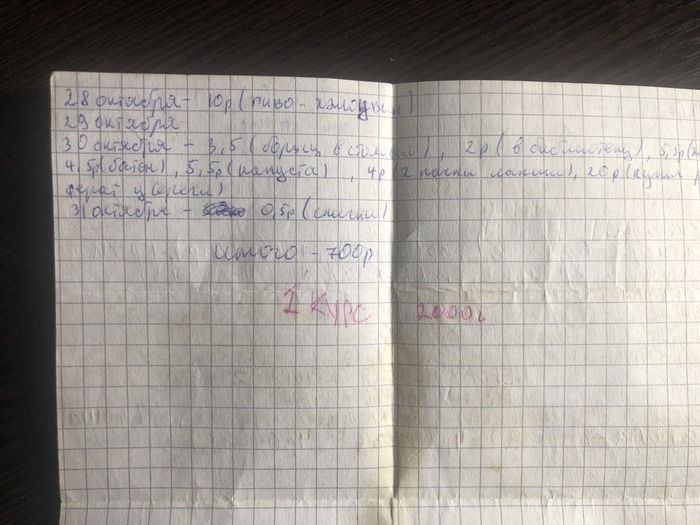 28 октября - 10р (пиво - хэлоуин)
29 октября
30 октября - 3,5 (борщ в столовой), 2р (в библиотеку), 5,5р
4,5р (батон), 5,5р (капуста), 4р (2 пачки лапши), 20р (купил
ферат у Сереги)
31 октября - 0,5р (спички)
Итого - 700р
1 Курс 2000г